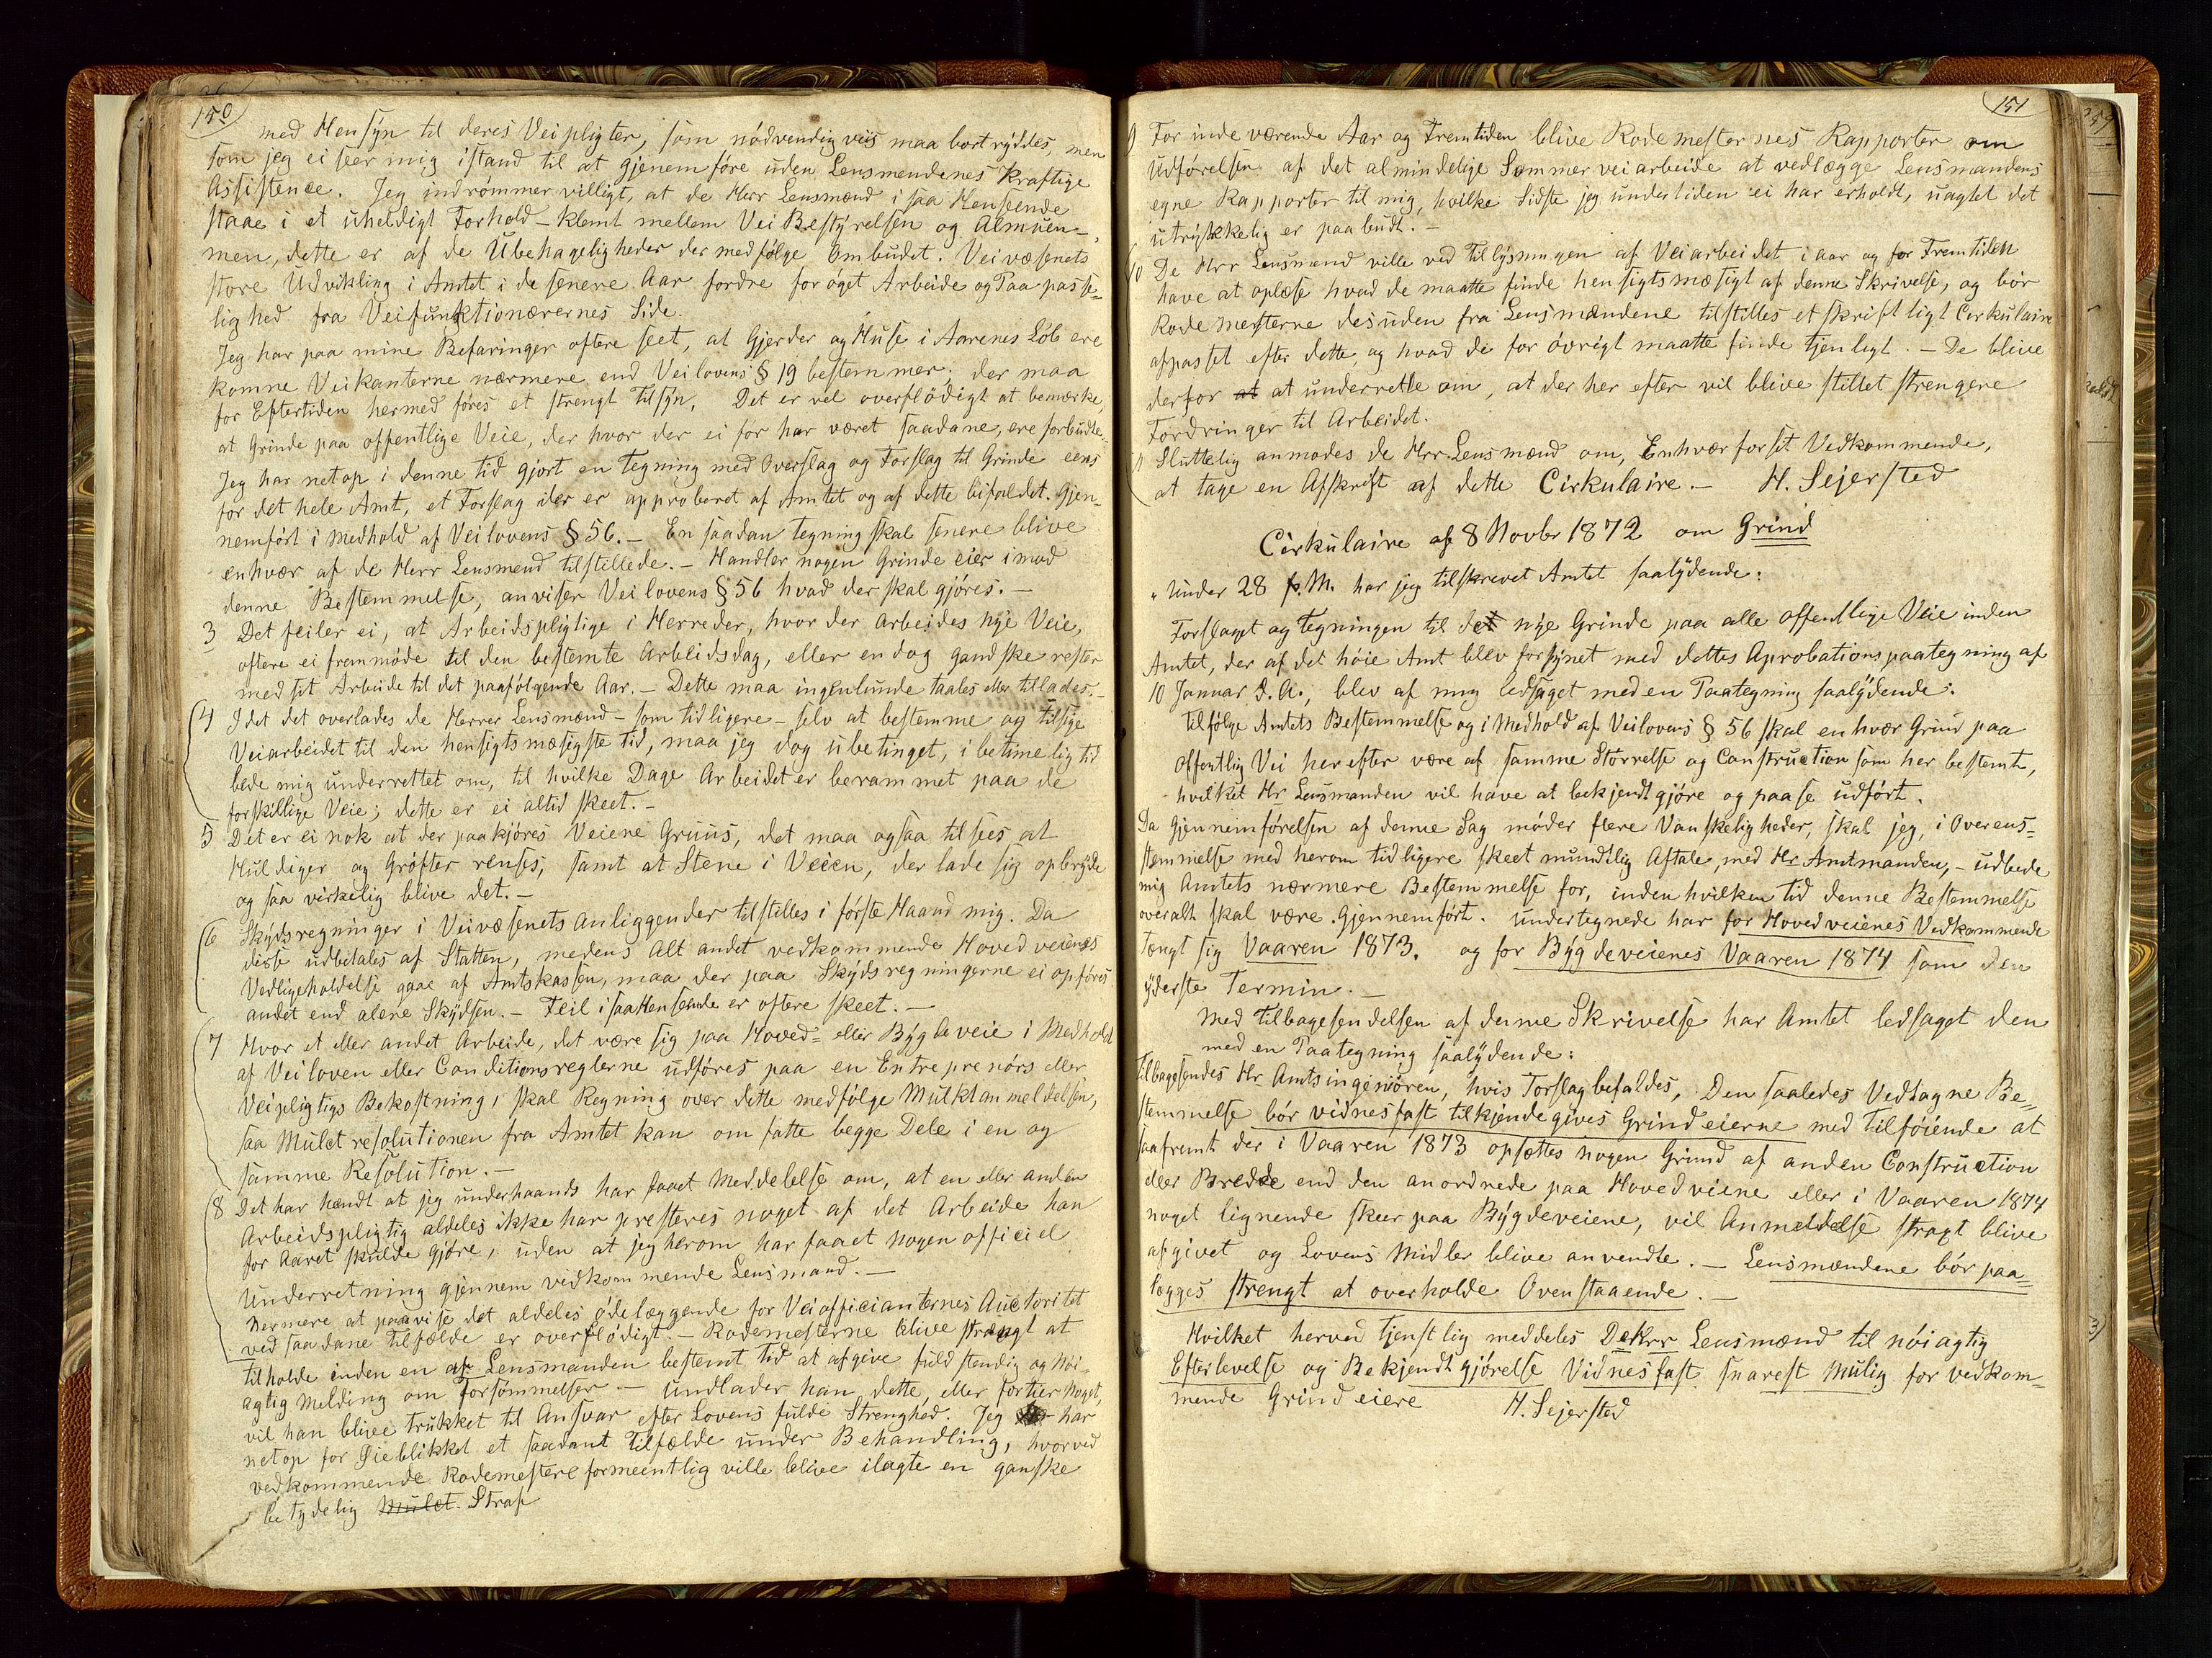 150
med Hensyn til deres Veipligter, som nödvendigviis maa bortryddes, men
som jeg ei seer mig istand til at gjenemföre uden Lensmendenes kraftige
Assistence. Jeg indrömmer villigt, at de Herr Lensmænd i saa Henseende
staae i et uheldigt Forhold - klemt mellem Vei Bestyrelsen og Almuen -,
men, dette er af de Ubehageligheder der medfölge Ombudet. Veivæsenets
store Udvikling i Amtet i de senere Aar fordre foröget Arbeide og Paapasse-
lighed fra Veifunktionærernes Side.
Jeg har paa mine Befaringer oftere seet, at Gjerder og Huse i Aarenes Löb ere
komne Veikanterne nærmere end Veilovens § 19 bestemmer; der maa
for Eftertiden hermed föres et strengt Tilsyn. Det er vel overflödigt at bemærke,
at Grinde paa offentlige Veie, der hvor der ei för har været saadane, ere forbudte.
Jeg har netop i denne tid gjort en Tegning med Overslag og Forslag til Grinde eens
for det hele Amt, et Forslag der er approberet af Amtet og af dette bifaldet. Gjen-
nemfört i Medhold af Veilovens § 56. - En saadan Tegning skal senere blive
enhvær af de Herr Lensmend tilstillede. - Handler nogen Grinde eier imod
denne Bestemmelse, anviser Veilovens § 56 hvad der skal gjöres. -
3 Det feiler ei, at Arbeidspligtige i Herreder, hvor der Arbeides nye Veie,
oftere ei fremmöde til den bestemte Arbeidsdag, eller endog gandske rester
med sit Arbeide til det paafölgende Aar. - Dette maa ingenlunde taales eller tillades. -
4 Idet det overlades de Herrer Lensmænd - som tidligere - selv at bestemme og tilsige
Veiarbeidet til den hensigtsmæsigste Tid, maa jeg dog ubetinget, i betimelig tid
bede mig underrettet om, til hvilke Dage Arbeidet er berammet paa de
forskillige Veie; dette er ei altid skeet. -
5 Det er ei nok at der paakjöres Veiene Gruus, det maa ogsaa tilsees at
Huldiger og Gröfter renses, samt at Stene i Veien, der lade sig opbryde
ogsaa virkelig blive det. -
6 Skydsregninger i Veivæsenets Anliggender tilstilles i förste Haand mig. Da
disse udbetales af Statten, medens Alt andet vedkommende Hovedveienes
Vedligeholdelse gaae af Amtskassen, maa der paa Skydsregningerne ei opföres
andet end alene Skydsen. - Feil i saa Henseende er oftere skeet. -
7 Hvor et eller andet Arbeide, det være sig paa Hoved= eller Bygdeveie i Medhold
af Veiloven eller Conditionsreglerne udföres paa en Entreprenörs eller
Veipligtigs Bekostning, skal Regning over dette medfölge Mulktanmeldelsen,
saa Mulctresolutionen fra Amtet kan omfatte begge Dele i en og
samme Resolution. -
8 Det har hændt at jeg underhaands har faaet Meddelelse om, at en eller anden
Arbeidspligtig aldeles ikke har presteres noget af det Arbeide han
for Aaret skulde gjöre, uden at jeg herom har faaet nogen officiel
Underretning gjennem vedkommende Lensmand. -
Nermere at paavise det aldeles ödelæggende for Veiofficianternes Auctoritet
ved saadane Tilfælde er overflödigt. - Rodemesterne blive strængt at
tilholde inden en af Lensmanden bestemt tid at afgive fuldstendig og nöi-
agtig Melding om Forsömmelser. - undlader han dette, eller fortier noget,
vil han blive trukket til Ansvar efter Lovens fulde Strenghed. Jeg har
netop for Öieblikket et saadant Tilfælde under Behandling, hvorved
vedkommende Rodemestere formeentlig ville blive ilagte en ganske
betydelig Mulct. Straf
151
9 For indeværende Aar og Fremtiden blive Rodemesternes Rapporter om
Udförelsen af det almindelige Sommerveiarbeide at vedlægge Lensmandens
egne Rapporter til mig, hvilke Sidste jeg undertiden ei har erholdt, uagtet det
utrykkelig er paabudt. -
10 De Hrr Lensmænd ville ved Tillysningen af Veiarbeidet i aar og for Fremtiden
have at oplæse hvad de maatte finde hensigtsmæsigt af denne Skrivelse, og bör
Rodemesterne desuden fra Lensmændene tilstilles et skriftligt Cirkulaire
afpasset efter dette, og hvad de for övrigt maatte finde tjenligt. - De blive
derfor at at underrette om, at der her efter vil blive stillet strengere
Fordringer til Arbeidet.
11 Sluttelig anmodes de Hrr. Lensmænd om, Enhvær for sit Vedkommende,
at tage en Afskrift af dette Cirkulaire. - H. Sejersted
Cirkulaire af 8 Novbr 1872 om Grind
"Under 28 f. M. har jeg tilskrevet Amtet saalydende:
Forslaget og Tegningen til det nye Grinde paa alle offentlige Veie inden
Amtet, der af det höie Amt blev forsynet med dettes Aprobationspaategning af
10 Januar d. A., blev af mig ledsaget med en Paategning saalydende:
tilfölge Amtets Bestemmelse og i Medhold af Veilovens § 56 skal enhvær Grind paa
offentlig Vei herefter være af samme Störrelse og Construction som her bestemt,
hvilket Hr Lensmanden vil have at bekjendtgjöre og paase udfört.
Da Gjennemförelsen af denne Sag möder flere Vanskeligheder, skal jeg, i Overens=
stemmelse med herom tidligere skeet mundtlig Aftale, med Hr. Amtmanden, - udbede
mig Amtets nærmere Bestemmelse for, inden hvilken tid denne Bestemmelse
overalt skal være Gjennemfört. undertegnede har for Hovedveienes Vedkommende
tængt sig Vaaren 1873. og for Bygdeveienes Vaaren 1874 som den
yderste Termin. -
Med Tilbagesendelsen af denne Skrivelse har Amtet ledsaget den
med en Paategning saalydende:
Tilbagesendes Hr. Amtsingeniören, hvis Forslag befaldes, Den saaledes Vedtagne Be-
stemmelse bör vidnesfast tilkjendegives Grindeierne med Tilföiende at
saafremt der i Vaaren 1873 opsættes nogen Grind af anden Construction
eller Bredde end den anordnede paa Hovedveiene eller i Vaaren 1874
noget lignende skeer paa Bygdeveiene, vil Anmeldelse stragt blive
afgivet og Lovens Midler blive anvendte. - Lensmændene bör paa=
lægges strengt at overholde Ovenstaaende. -
Hvilket herved tjenstlig meddeles DeHrr Lensmænd til nöiagtig
Efterlevelse og Bekjendtgjörelse Vidnesfast snarest Mulig for vedkom=
mende Grindeiere H. Sejersted